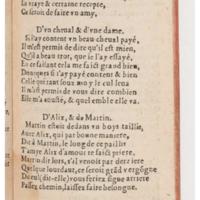 La vraye & certaine recepte,
Ce seroit de faire vn amy,
D'vn cheual & d'vne dame.
Si i'ay content vn beau cheual payé,
Il m'est permis de dire qu'il est mien,
Qu'il a beau trot, que ie l'ay essayé,
En ce faisant cela me faict grand bien,
Doncques si i'ay payé content & bien
Celle qui tout soubz moy le cul lena
Il m'est permis de vous dire combien
Elle m'a cousté, & quel emble elle va.
D'Alix, & de Martin.
Martin estoit dedans vn boys taillis,
Auec Alix, qui par bonne maniere,
Dit à Martin, le long de ce pallis
T'amye Alix d'amour se faict priere.
Martin dit lors, s'il venoit par derriere
Quelque lourdaut, ce seroit grãd vergõgne
Du cul, dit-elle, vous ferez signe arriere
Passez chemin, laissez faire besongne.